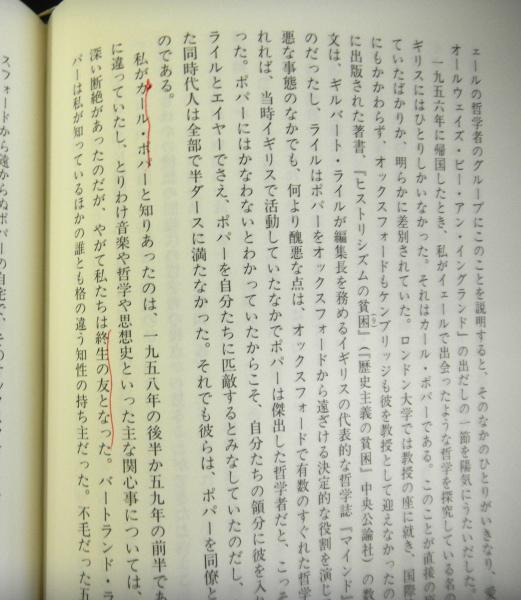 ェールの哲学者のグループにこのことを説明すると、そのなかのひとりがいきなり、愛
オールウェイズ・ビー・アン・イングランド』の出だしの一節を陽気にうたいだした。
一九五六年に帰国したとき、私がイェールで出会ったような哲学を探究している名の
ギリスにはひとりしかいなかった。それはカール・ポパーである。このことが直接の原
ていたばかりか、明らかに差別されていた。ロンドン大学では教授の座に就き、国際
にもかかわらず、オックスフォードもケンブリッジも彼を教授として迎えなかったの
に出版された著書、『ヒストリシズムの貧困』(『歴史主義の貧困』中央公論社)の数
文は、ギルバート・ライルが編集長を務めるイギリスの代表的な哲学誌『マインド』
のだったし、ライルはポパーをオックスフォードから遠ざける決定的な役割を演じ
悪な事態のなかでも、何より醜悪な点は、オックスフォードで有数のすぐれた哲学
れれば、当時イギリスで活動していたなかでポパーは傑出した哲学者だと、こっそ
った。ポパーにはかなわないとわかっていたからこそ、自分たちの領分に彼を入れ
ライルとエイヤーでさえ、ポパーを自分たちに匹敵するとみなしていたのだし、
た同時代人は全部で半ダースに満たなかった。それでも彼らは、ポパーを同僚と
のである。
私がカール・ポパーと知りあったのは、一九五八年の後半か五九年の前半であ
に違っていたし、とりわけ音楽や哲学や思想史といった主な関心事については、
深い断絶があったのだが、やがて私たちは終生の友となった。バートランド・ラ
パーは私が知っているほかの誰とも格の違う知性の持ち主だった。不毛だった五
スフォードから遠からぬポパーの自宅で、